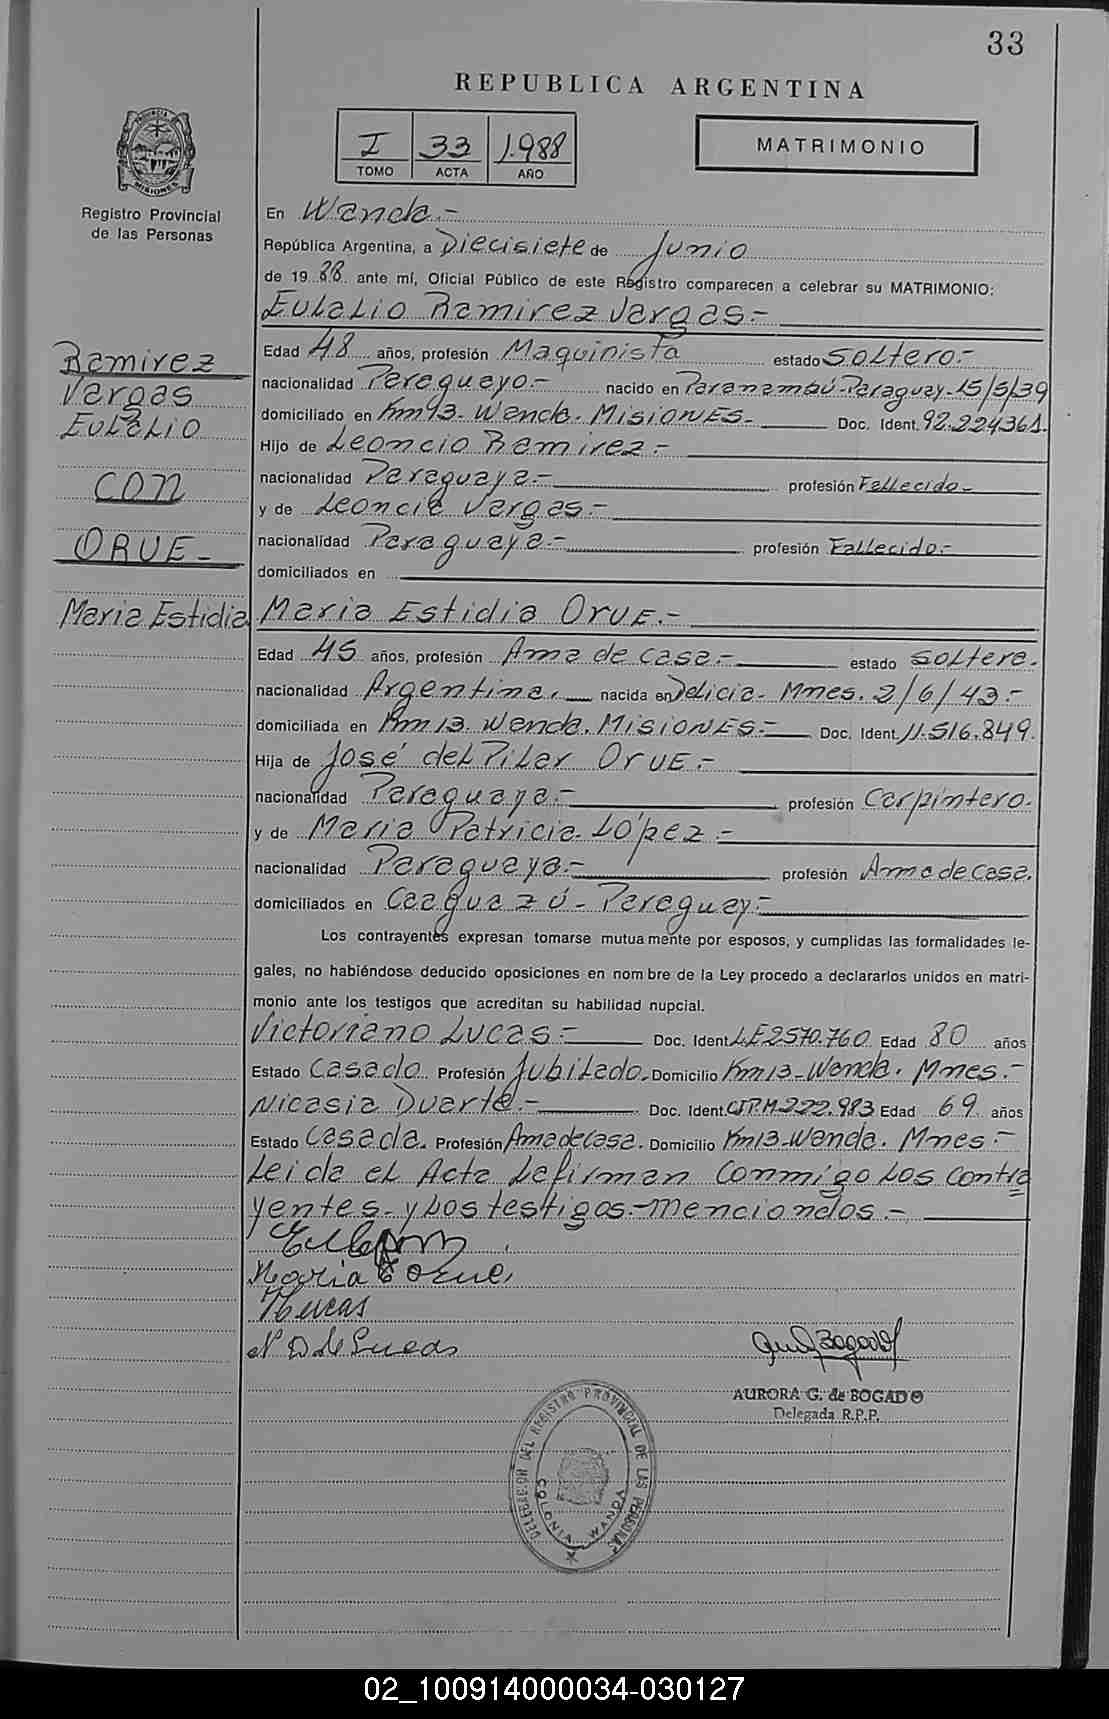 33
REPUBLICA ARGENTINA
I 33 1.988
TOMO ACTA AÑO
MATRIMONIO
PROVINCIA DE MISIONES
Registro Provincial
de las Personas
En Wanda.-
República Argentina, a Diecisiete de Junio
de 19 88 ante mí, Oficial Público de este Registro comparecen a celebrar su MATRIMONIO:
Eulalio Ramirez Vargas.-
Edad 48 años, profesión Maquinista estado soltero.-
nacionalidad Paraguayo.- nacido en Paranambú-Paraguay-15/5/39
domiciliado en Km 13.- Wanda. MISIONES.- Doc. Ident. 92.224361.
Hijo de Leoncio Ramirez.-
nacionalidad Paraguaya.- profesión Fallecido-
y de Leoncia Vargas.-
nacionalidad Paraguaya.- profesión Fallecido.-
domiciliados en
Ramirez
Vargas
Eulalio
con
ORUE-
Maria Estidia
Maria Estidia Orue.-
Edad 45 años, profesión Ama de casa.- estado soltera.
nacionalidad Argentina. nacida en Delicia- Mnes. 2/6/43.-
domiciliada en Km 13. Wanda. MISIONES.- Doc. Ident. 11.516.849.
Hija de José del Pilar Orue.-
nacionalidad Paraguaya.- profesión Carpintero.
y de Maria Patricia López.-
nacionalidad Paraguaya.- profesión Ama de Casa.
domiciliados en Caaguazú- Paraguay.-
Los contrayentes expresan tomarse mutuamente por esposos, y cumplidas las formalidades le-
gales, no habiéndose deducido oposiciones en nombre de la Ley procedo a declararlos unidos en matri-
monio ante los testigos que acreditan su habilidad nupcial.
Victoriano Lucas.- Doc. Ident. LE 2570.760 Edad 80 años
Estado Casado Profesión Jubilado. Domicilio Km 13-Wanda. Mnes.-
Nicasia Duarte.- Doc. Ident. CIPM 222.983 Edad 69 años
Estado Casada. Profesión Ama de Casa. Domicilio Km 13-Wanda. Mnes.-
Leida el Acta la firman conmigo los contra
yentes- y los testigos.-mencionados.-
Maria E Orue
N D de Lucas
AURORA G. de BOGADO
Delegada R.P.P.
DELEGACION DEL REGISTRO PROVINCIAL DE LAS PERSONAS
COLONIA WANDA
02_100914000034-030127